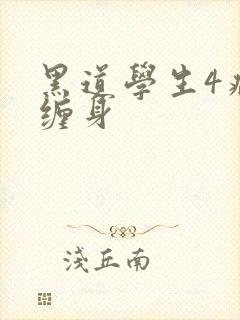 黑道學生4
缠身
淺丘南